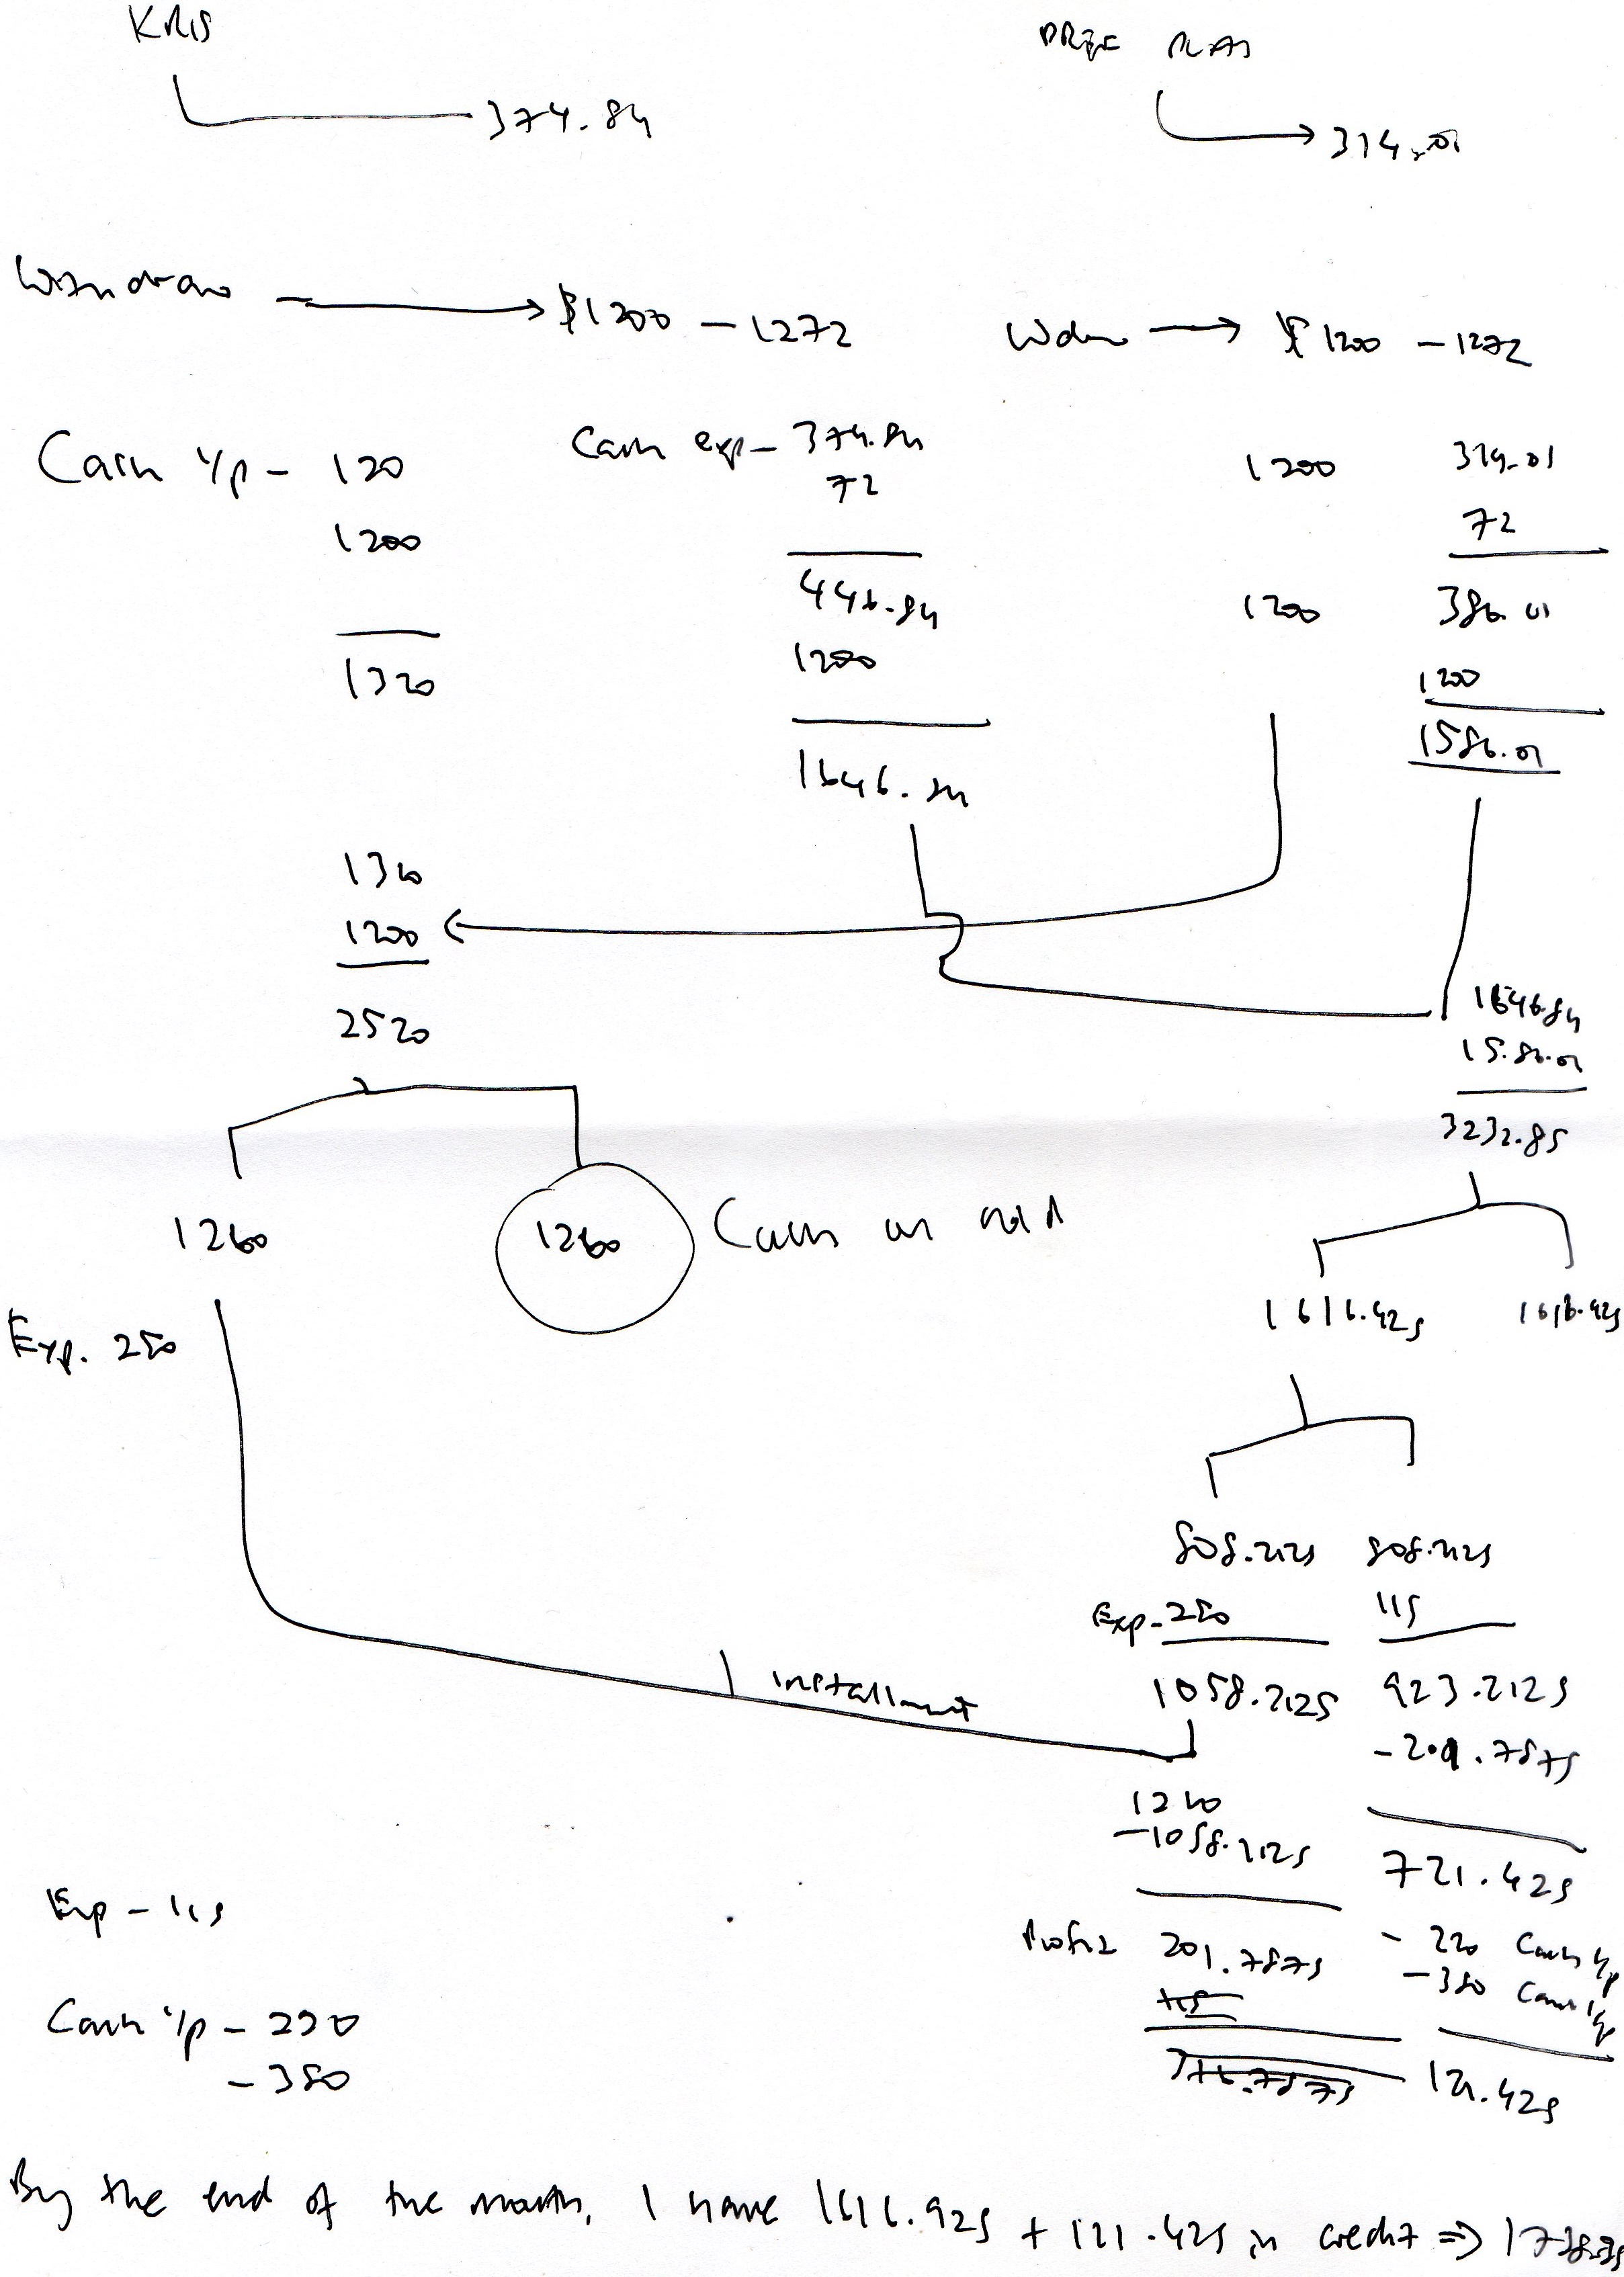 KRIS
374.84
314.01
Withdraw $1200 - 1272
$1200 - 1272
Cash i/p - 120
1200
1320
Cash exp - 374.84
72
446.84
1200
1646.84
1200
1200
314.01
72
386.01
1200
1586.01
1320
1200
2520
1646.84
1586.01
3232.85
1260
1260
Cash in
Exp. 250
1616.425
1616.425
808.2125
808.2125
Exp - 250
115
1058.2125
923.2125
installment
1260
-1058.2125
721.425
Exp - 115
Profit
201.7875
- 220 Cash i/p
- 380 Cash i/p
Cash i/p - 220
- 380
121.425
By the end of the month, I have 1616.425 + 121.425 in credit ⇒